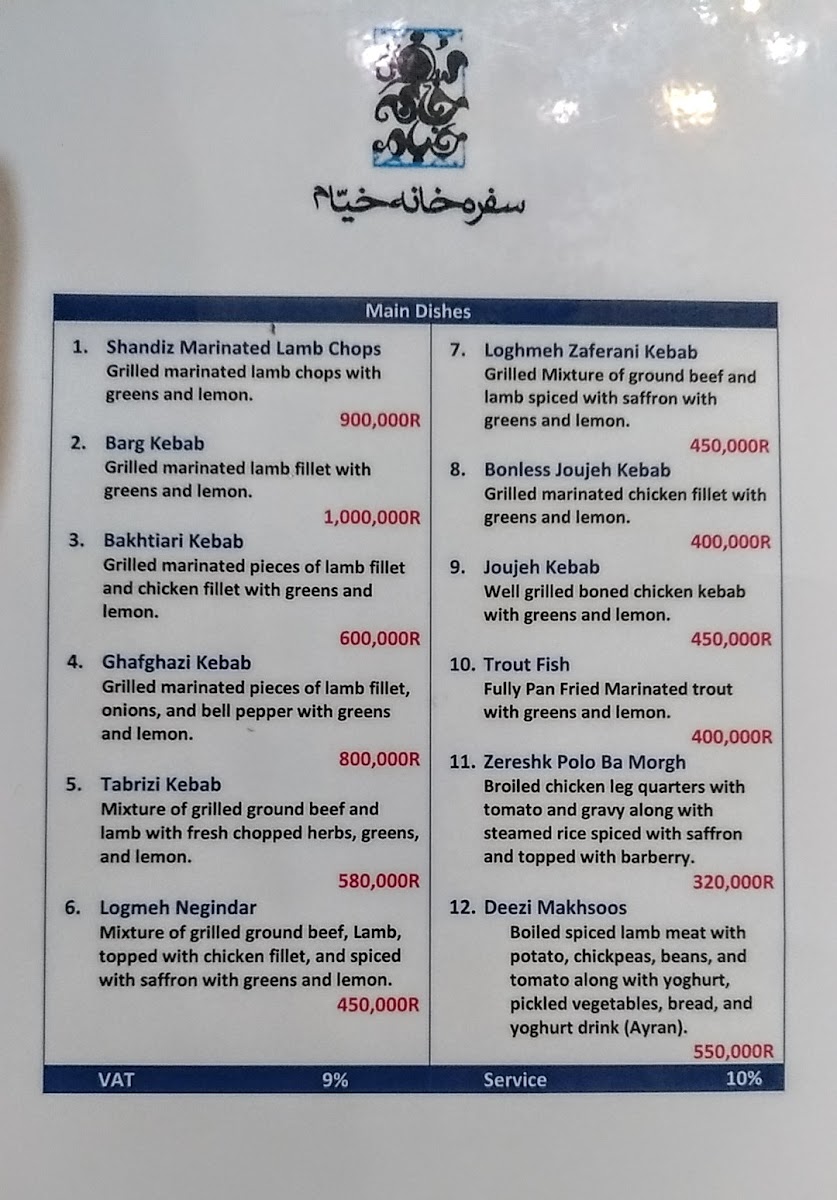 سفره خانه خیّام
سفره‌خانه خیّام
Main Dishes
1. Shandiz Marinated Lamb Chops
Grilled marinated lamb chops with
greens and lemon.
900,000R
2. Barg Kebab
Grilled marinated lamb fillet with
greens and lemon.
1,000,000R
3. Bakhtiari Kebab
Grilled marinated pieces of lamb fillet
and chicken fillet with greens and
lemon.
600,000R
4. Ghafghazi Kebab
Grilled marinated pieces of lamb fillet,
onions, and bell pepper with greens
and lemon.
800,000R
5. Tabrizi Kebab
Mixture of grilled ground beef and
lamb with fresh chopped herbs, greens,
and lemon.
580,000R
6. Logmeh Negindar
Mixture of grilled ground beef, Lamb,
topped with chicken fillet, and spiced
with saffron with greens and lemon.
450,000R
7. Loghmeh Zaferani Kebab
Grilled Mixture of ground beef and
lamb spiced with saffron with
greens and lemon.
450,000R
8. Bonless Joujeh Kebab
Grilled marinated chicken fillet with
greens and lemon.
400,000R
9. Joujeh Kebab
Well grilled boned chicken kebab
with greens and lemon.
450,000R
10. Trout Fish
Fully Pan Fried Marinated trout
with greens and lemon.
400,000R
11. Zereshk Polo Ba Morgh
Broiled chicken leg quarters with
tomato and gravy along with
steamed rice spiced with saffron
and topped with barberry.
320,000R
12. Deezi Makhsoos
Boiled spiced lamb meat with
potato, chickpeas, beans, and
tomato along with yoghurt,
pickled vegetables, bread, and
yoghurt drink (Ayran).
550,000R
VAT 9% Service 10%